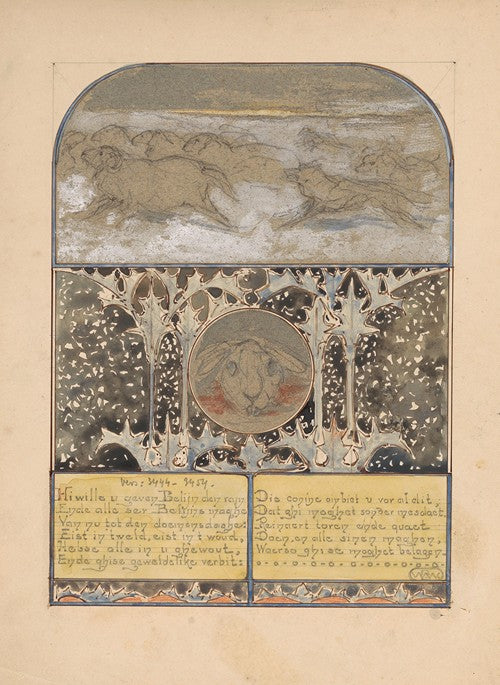 Vers: 3444-3454.
Hi wille u geven Belijn den ram
Ende alle ser Belijns maghe
Van nu tot den doemensdaghe:
Eist in tveld, eist in twoud,
Hebse alle in u ghewout,
Ende ghise geweldelike verbit:
Die coninc onbiet u vor al dit,
Dat ghi moghet sonder mesdaet
Reinaert toren ende quaet
Doen, en alle sinen maghen,
Waerso ghise moghet belagen.